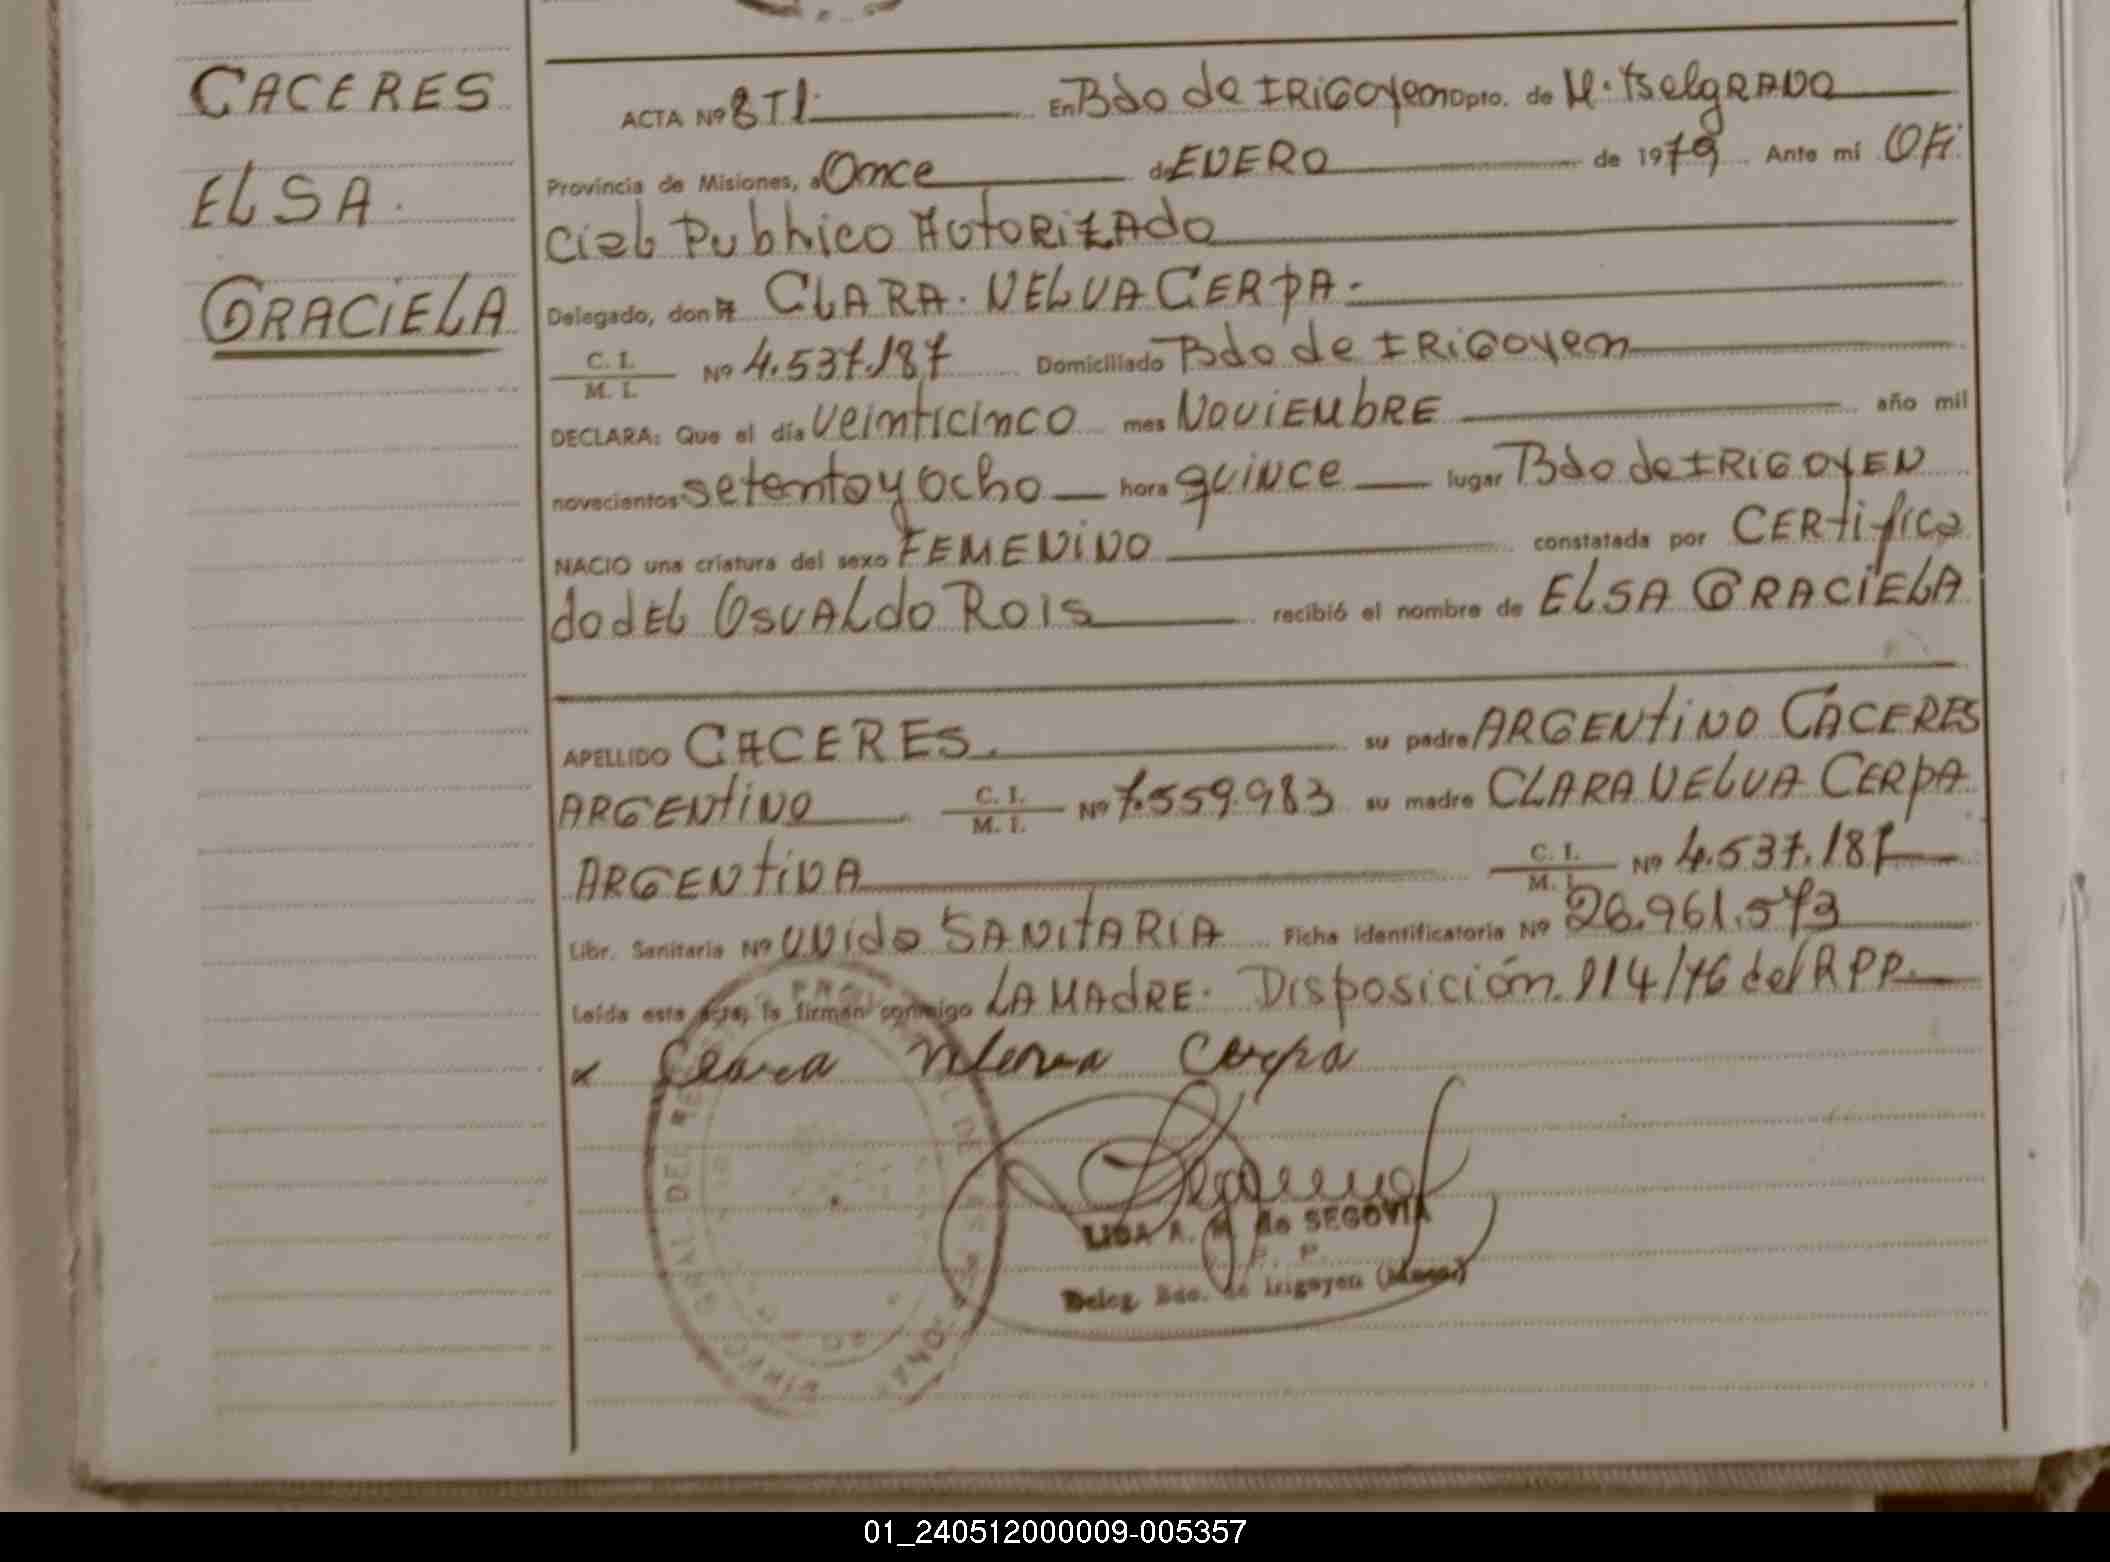 CACERES
ELSA.
GRACIELA
ACTA Nº 8 T I. En Bdo de IRIGOYEN Dpto. de M. Belgrano
Provincia de Misiones, a Once de ENERO de 1979 Ante mí OFi
cial Publico AUTORIZADO
Delegado, don A CLARA. NELVA CERPA.
C. I. / M. I. Nº 4.537.187 Domiciliado Bdo de IRIGOYEN
DECLARA: Que el día veinticinco mes NOVIEMBRE año mil
novecientos setenta y ocho hora quince lugar Bdo de IRIGOYEN
NACIO una criatura del sexo FEMENINO constatada por CERtifica
do dEL OSVALdo ROIS recibió el nombre de ELSA GRACIELA
APELLIDO CACERES. su padre ARGENTINO CACERES
ARGENTINO C. I. / M. I. Nº 7.559.983 su madre CLARA NELVA CERPA
ARGENTINA C. I. / M. I. Nº 4.537.187
Libr. Sanitaria Nº UNidad SANITARIA Ficha Identificatoria Nº 26.961.573
Leída esta acta, la firman conmigo LA MADRE. Disposición 914/76 del RPP.
Clara Nelva Cerpa
LIDA A. M. de SEGOVIA
Deleg. Bdo. de Irigoyen (Mnes.)
01_240512000009-005357